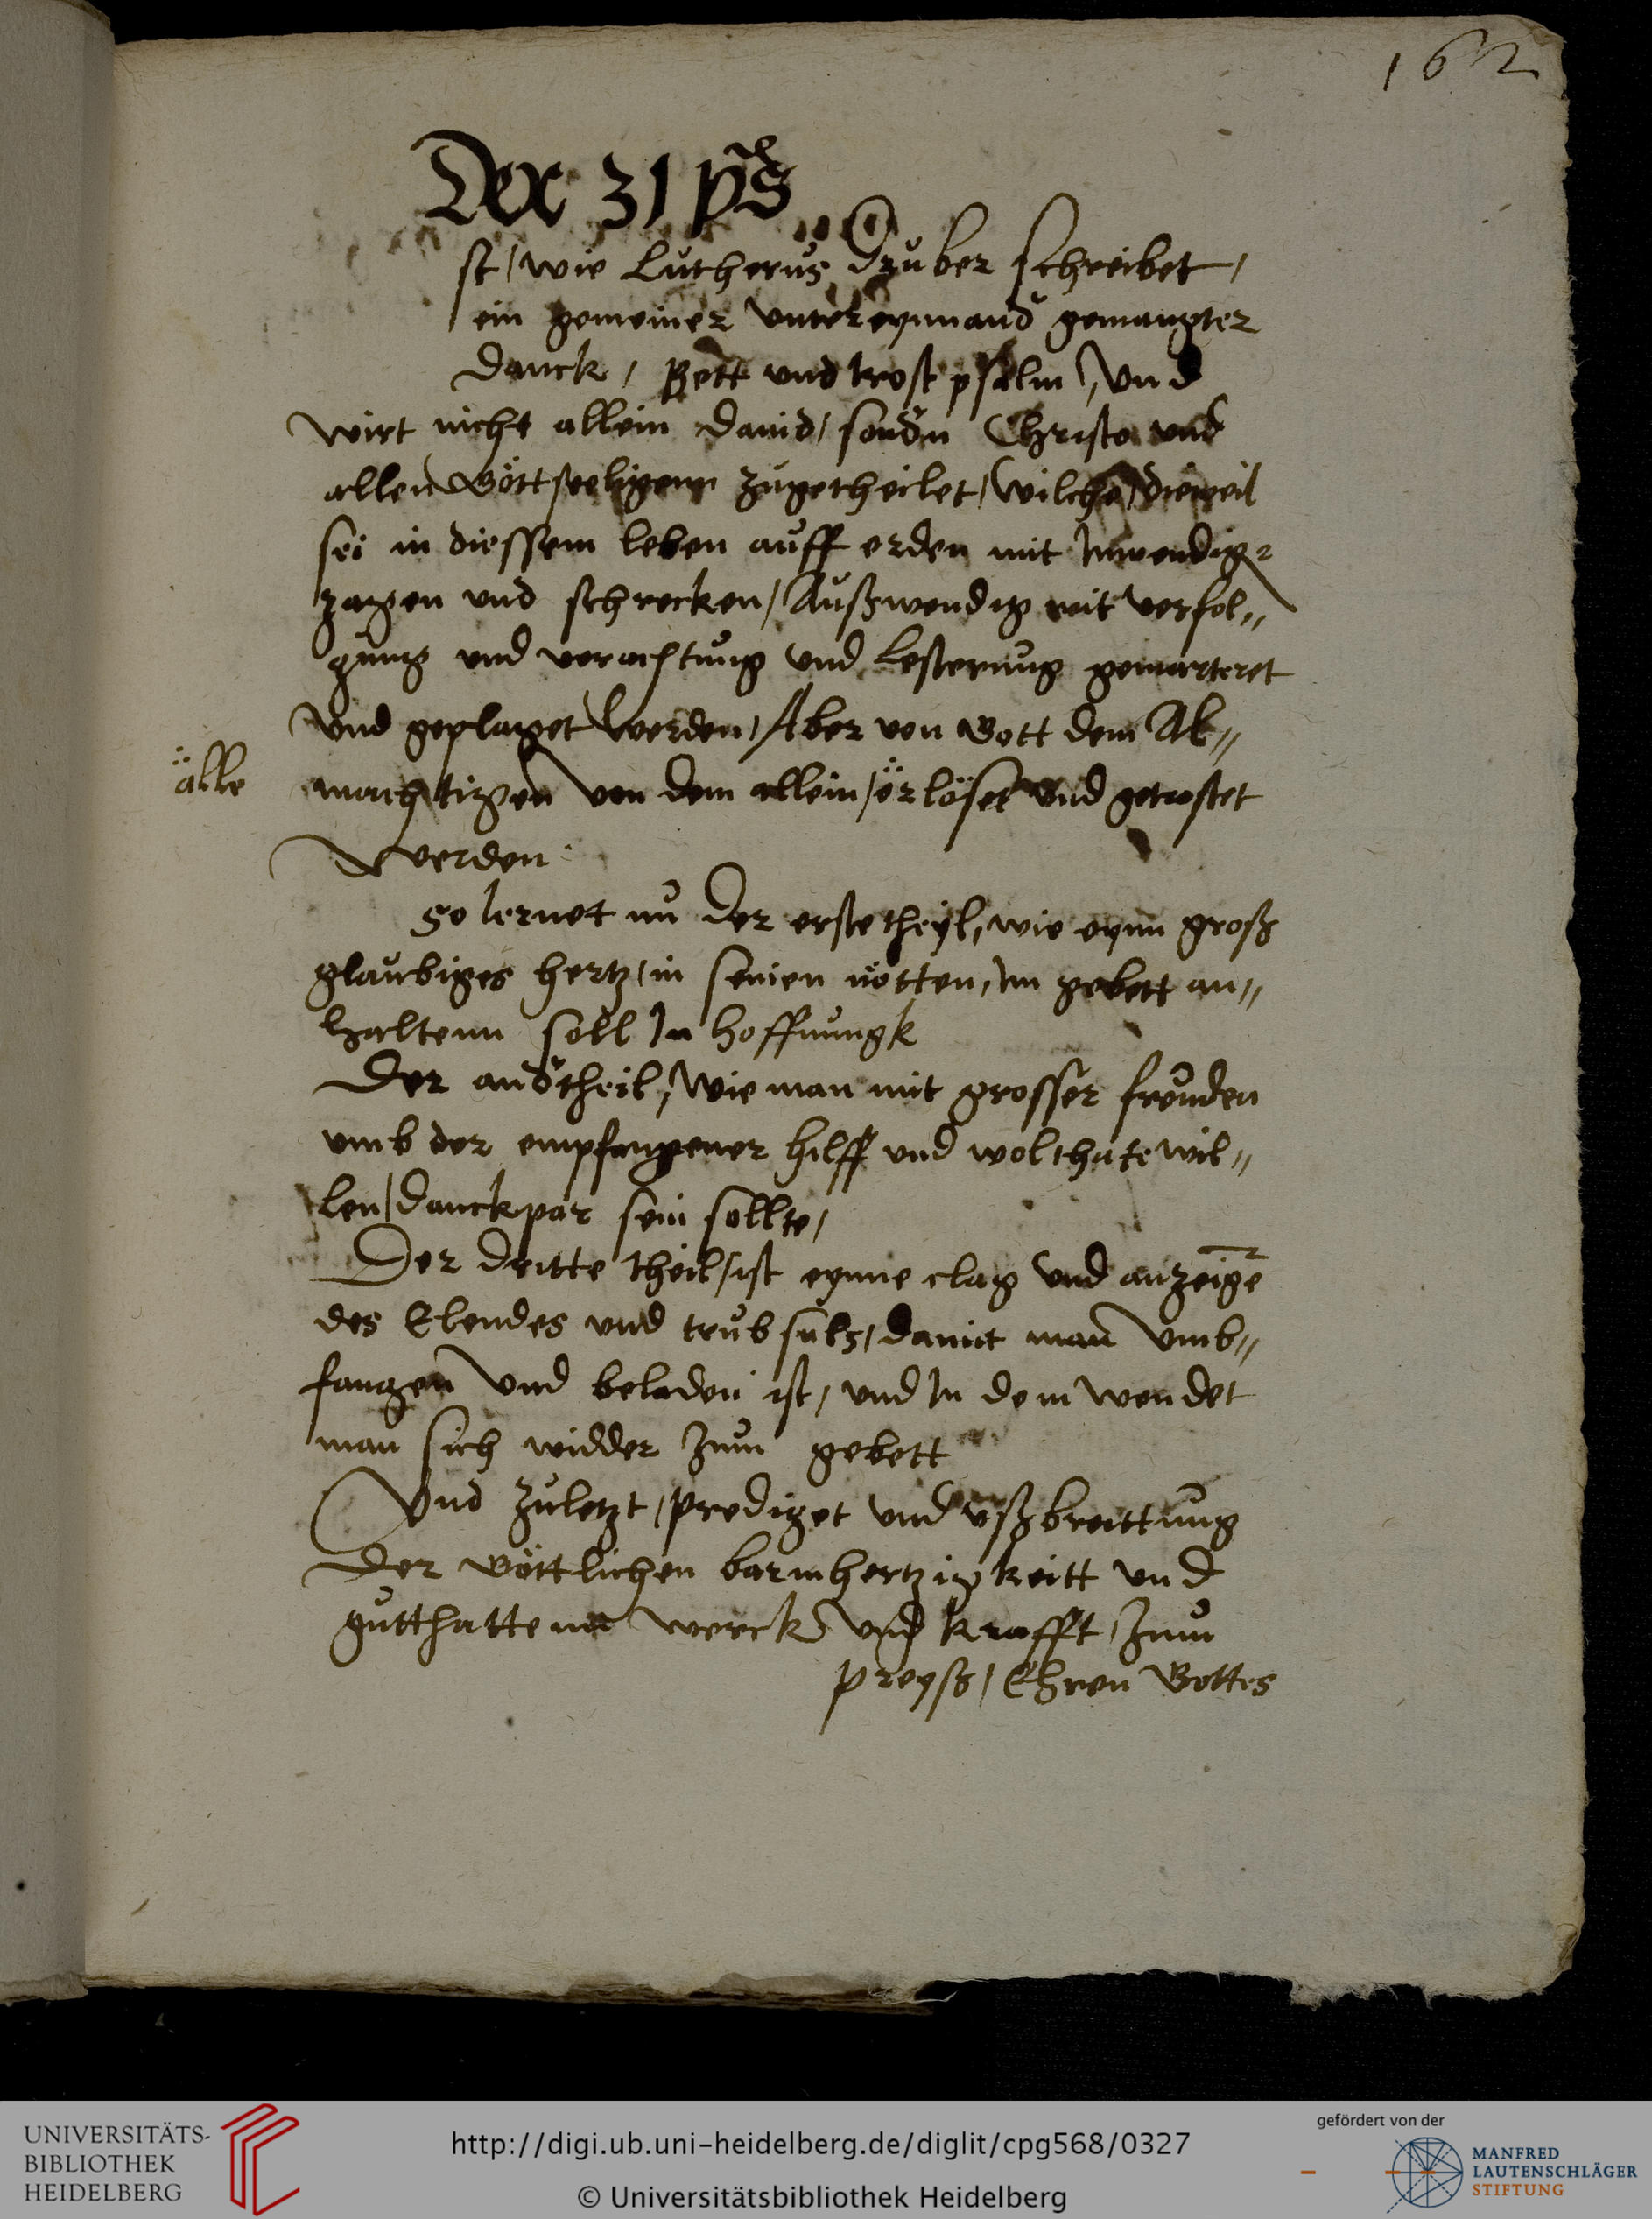 162
Der 31 ps
st / wie Lutherus druber schreibet /
ein gemeiner untereynnand gemangter
danck / Bett und trost psalm / und
wirt nicht allein david / sondn Christo und
allen Göttseeligenn zugetheilet / wilche / dieweil
sei in diessem leben auff erden mit Inwendig
zagen und schrecken / Außwendig mit verfol„
gung und verachtung und Lesterung gemarteret
und geplaget werden / Aber von Gott dem Al„
älle
mechtigen von dem allein / erlöset und getrostet
werden
So lernet nu der erste theyl, wie eynn groß
glaubiges hertz / in seinen nötten, Im gebett an„
haltenn soll In hoffnungk
Der andtheil, Wie man mit grosser freuden
umb der empfangener hilff und wolthate wil„
len / danckpar sein sollte /
Der dritte theil / ist eynne clag und anzeige
des Elendes und trubsals / damit man umb„
fangen und beladen ist, und In dem wendet
man sich widder Zum gebett
Und zuletzt / Prediget und ußbreittung
der Göttlichen barmhertzigkeitt und
gutthattenn werck und krafft / Zum
preyß / Ehren Gottes
UNIVERSITÄTS-
BIBLIOTHEK
HEIDELBERG
http://digi.ub.uni-heidelberg.de/diglit/cpg568/0327
© Universitätsbibliothek Heidelberg
gefördert von der
MANFRED
LAUTENSCHLÄGER
STIFTUNG